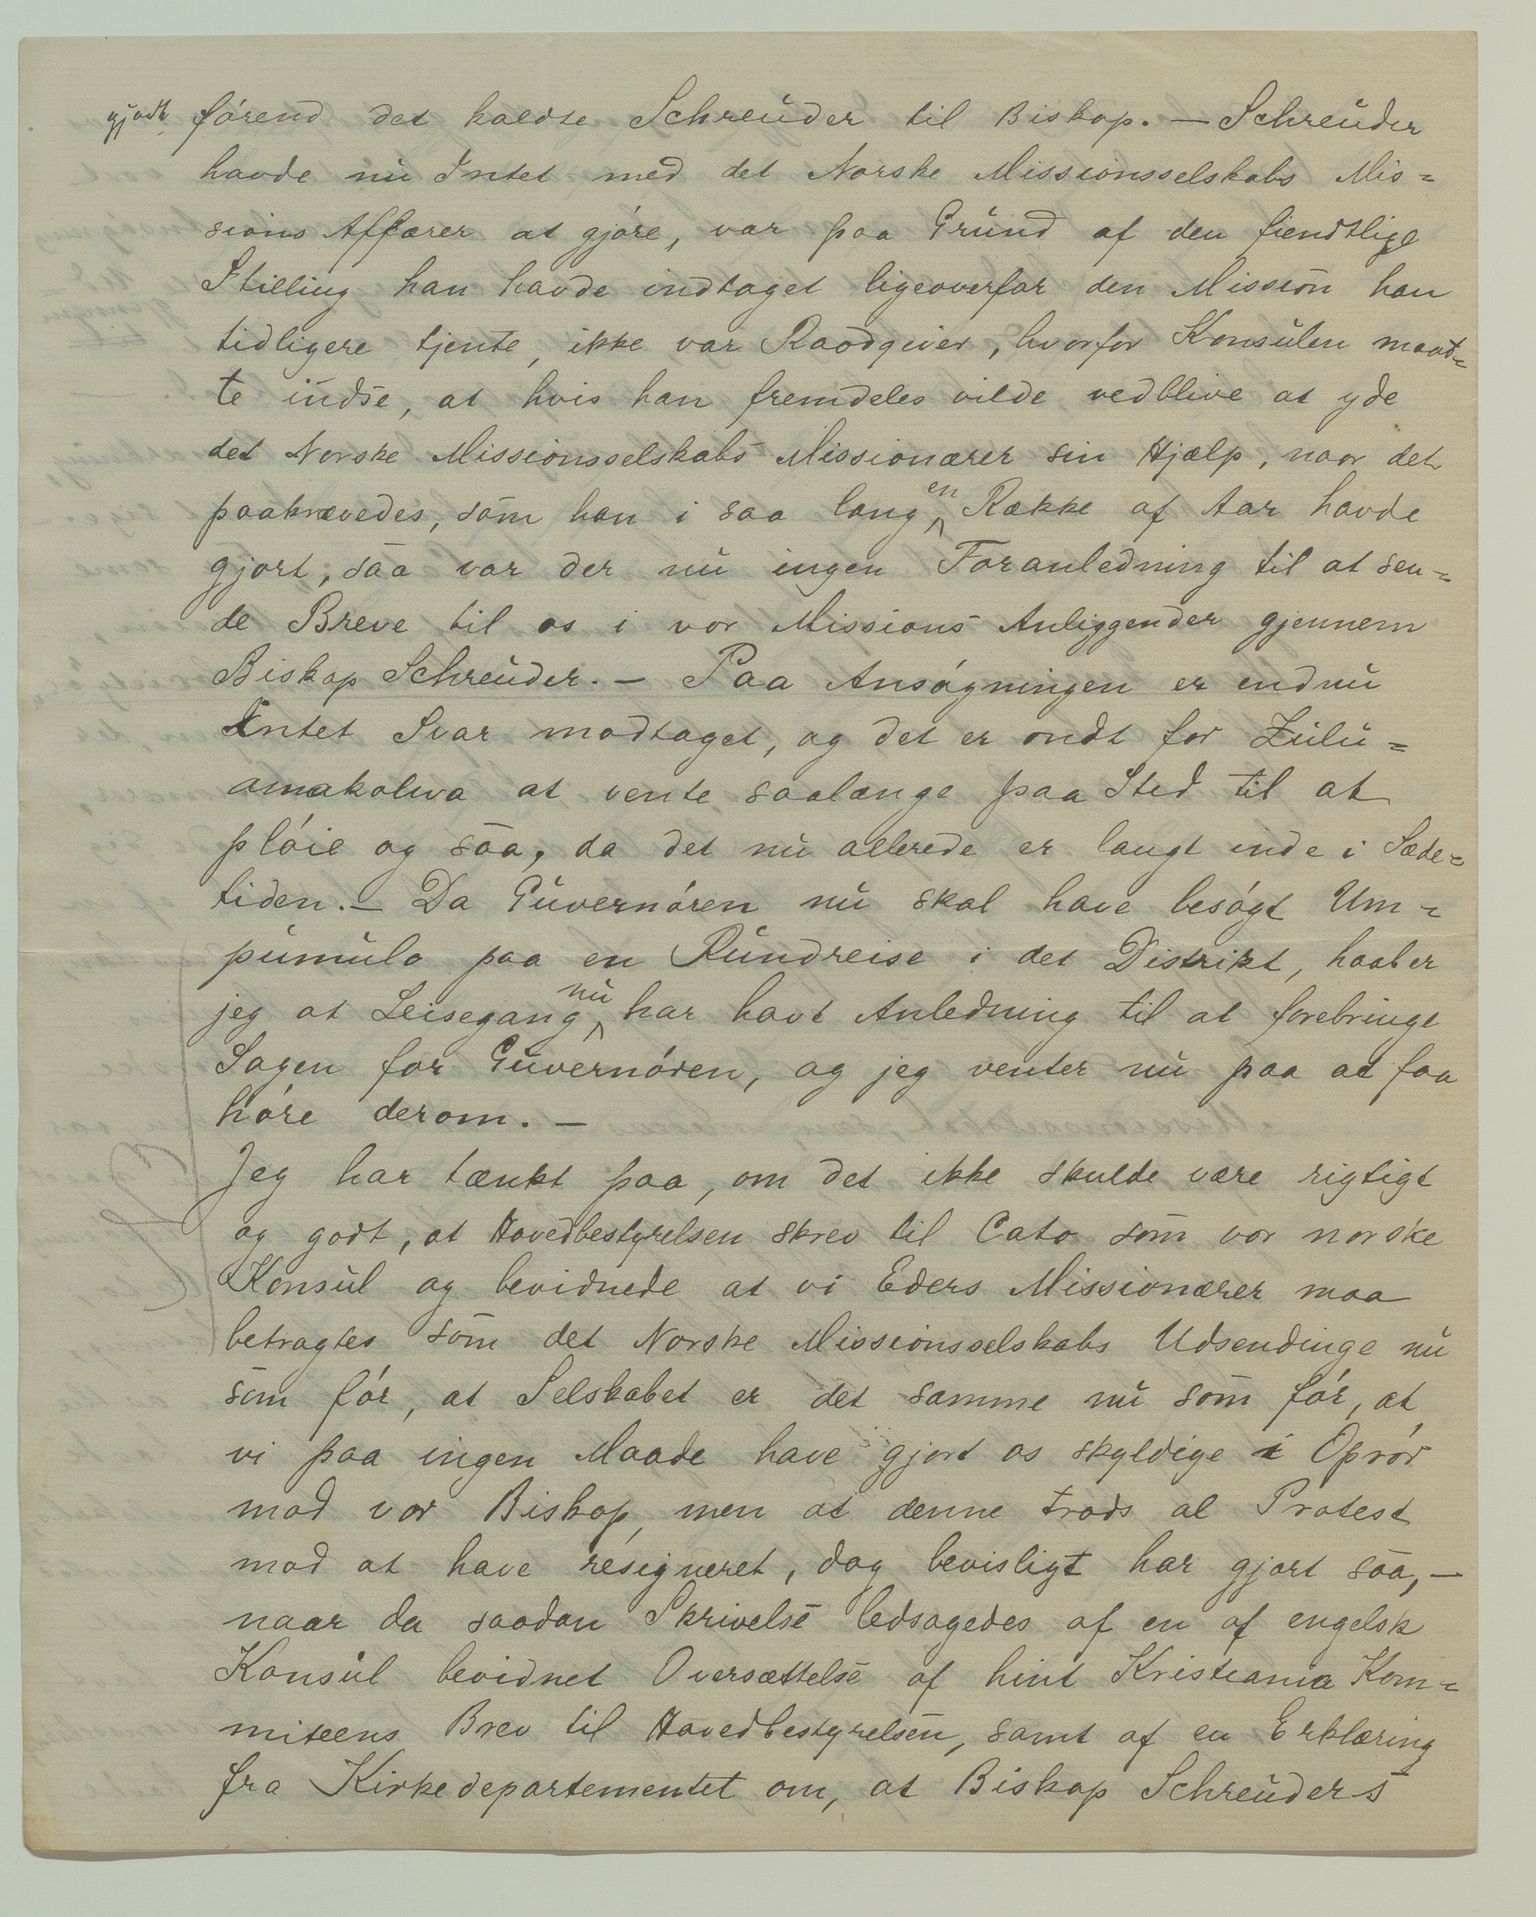 gjort, førend det kaldte Schreuder til Biskop. — Schreuder
havde nu Intet med det Norske Missionsselskabs Mis=
sions Affærer at gjøre, var paa Grund af den fiendtlige
Stilling han havde indtaget ligeoverfor den Mission han
tidligere tjente, ikke vor Raadgiver, hvorfor Konsulen maat=
te indse, at hvis han fremdeles vilde vedblive at yde
det Norske Missionsselskabs Missionærer sin Hjælp, naar det
paakrævedes, som han i saa lang en Række af Aar havde
gjort, saa var der nu ingen Foranledning til at sen=
de Breve til os i vor Missions Anliggender gjennem
Biskop Schreuder. — Paa Ansøgningen er endnu
Intet Svar modtaget, og det er ondt for Zulu=
amakolwa at vente saalænge paa Sted til at
pløie og saa, da det nu allerede er langt inde i Sæde=
tiden. — Da Guvernøren nu skal have besøgt Um=
pumulo paa en Rundreise i det Distrikt, haaber
jeg at Leisegang nu har havt Anledning til at forebringe
Sagen for Guvernøren, og jeg venter nu paa at faa
høre derom. —
Jeg har tænkt paa, om det ikke skulde være rigtigt
og godt, at Hovedbestyrelsen skrev til Cato som vor norske
Konsul og bevidnede at vi Eders Missionærer maa
betragtes som det Norske Missionsselskabs Udsendinge nu
som før, at Selskabet er det samme nu som før, at
vi paa ingen Maade have gjort os skyldige i Oprør
mod vor Biskop, men at denne trods al Protest
mod at have resigneret, dog bevisligt har gjort saa, —
naar da saadan Skrivelse ledsagedes af en af engelsk
Konsul bevidnet Oversættelse af hint Kristiania Kom=
miteens Brev til Hovedbestyrelsen, samt af en Erklæring
fra Kirkedepartementet om, at Biskop Schreuders